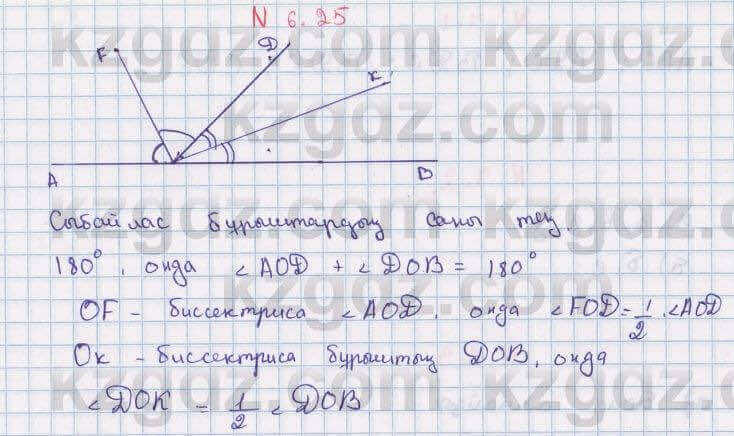 N 6.25
F
D
K
A
B
Сыбайлас бұрыштардың саны тең.
180°, онда ∠AOD + ∠DOB = 180°
OF - биссектриса ∠AOD, онда ∠FOD = 1/2 ∠AOD
OK - биссектриса бұрыштың DOB, онда
∠DOK = 1/2 ∠DOB
kzgdz.com
kzgdz.com
kzgdz.com
kzgdz.com
kzgdz.com